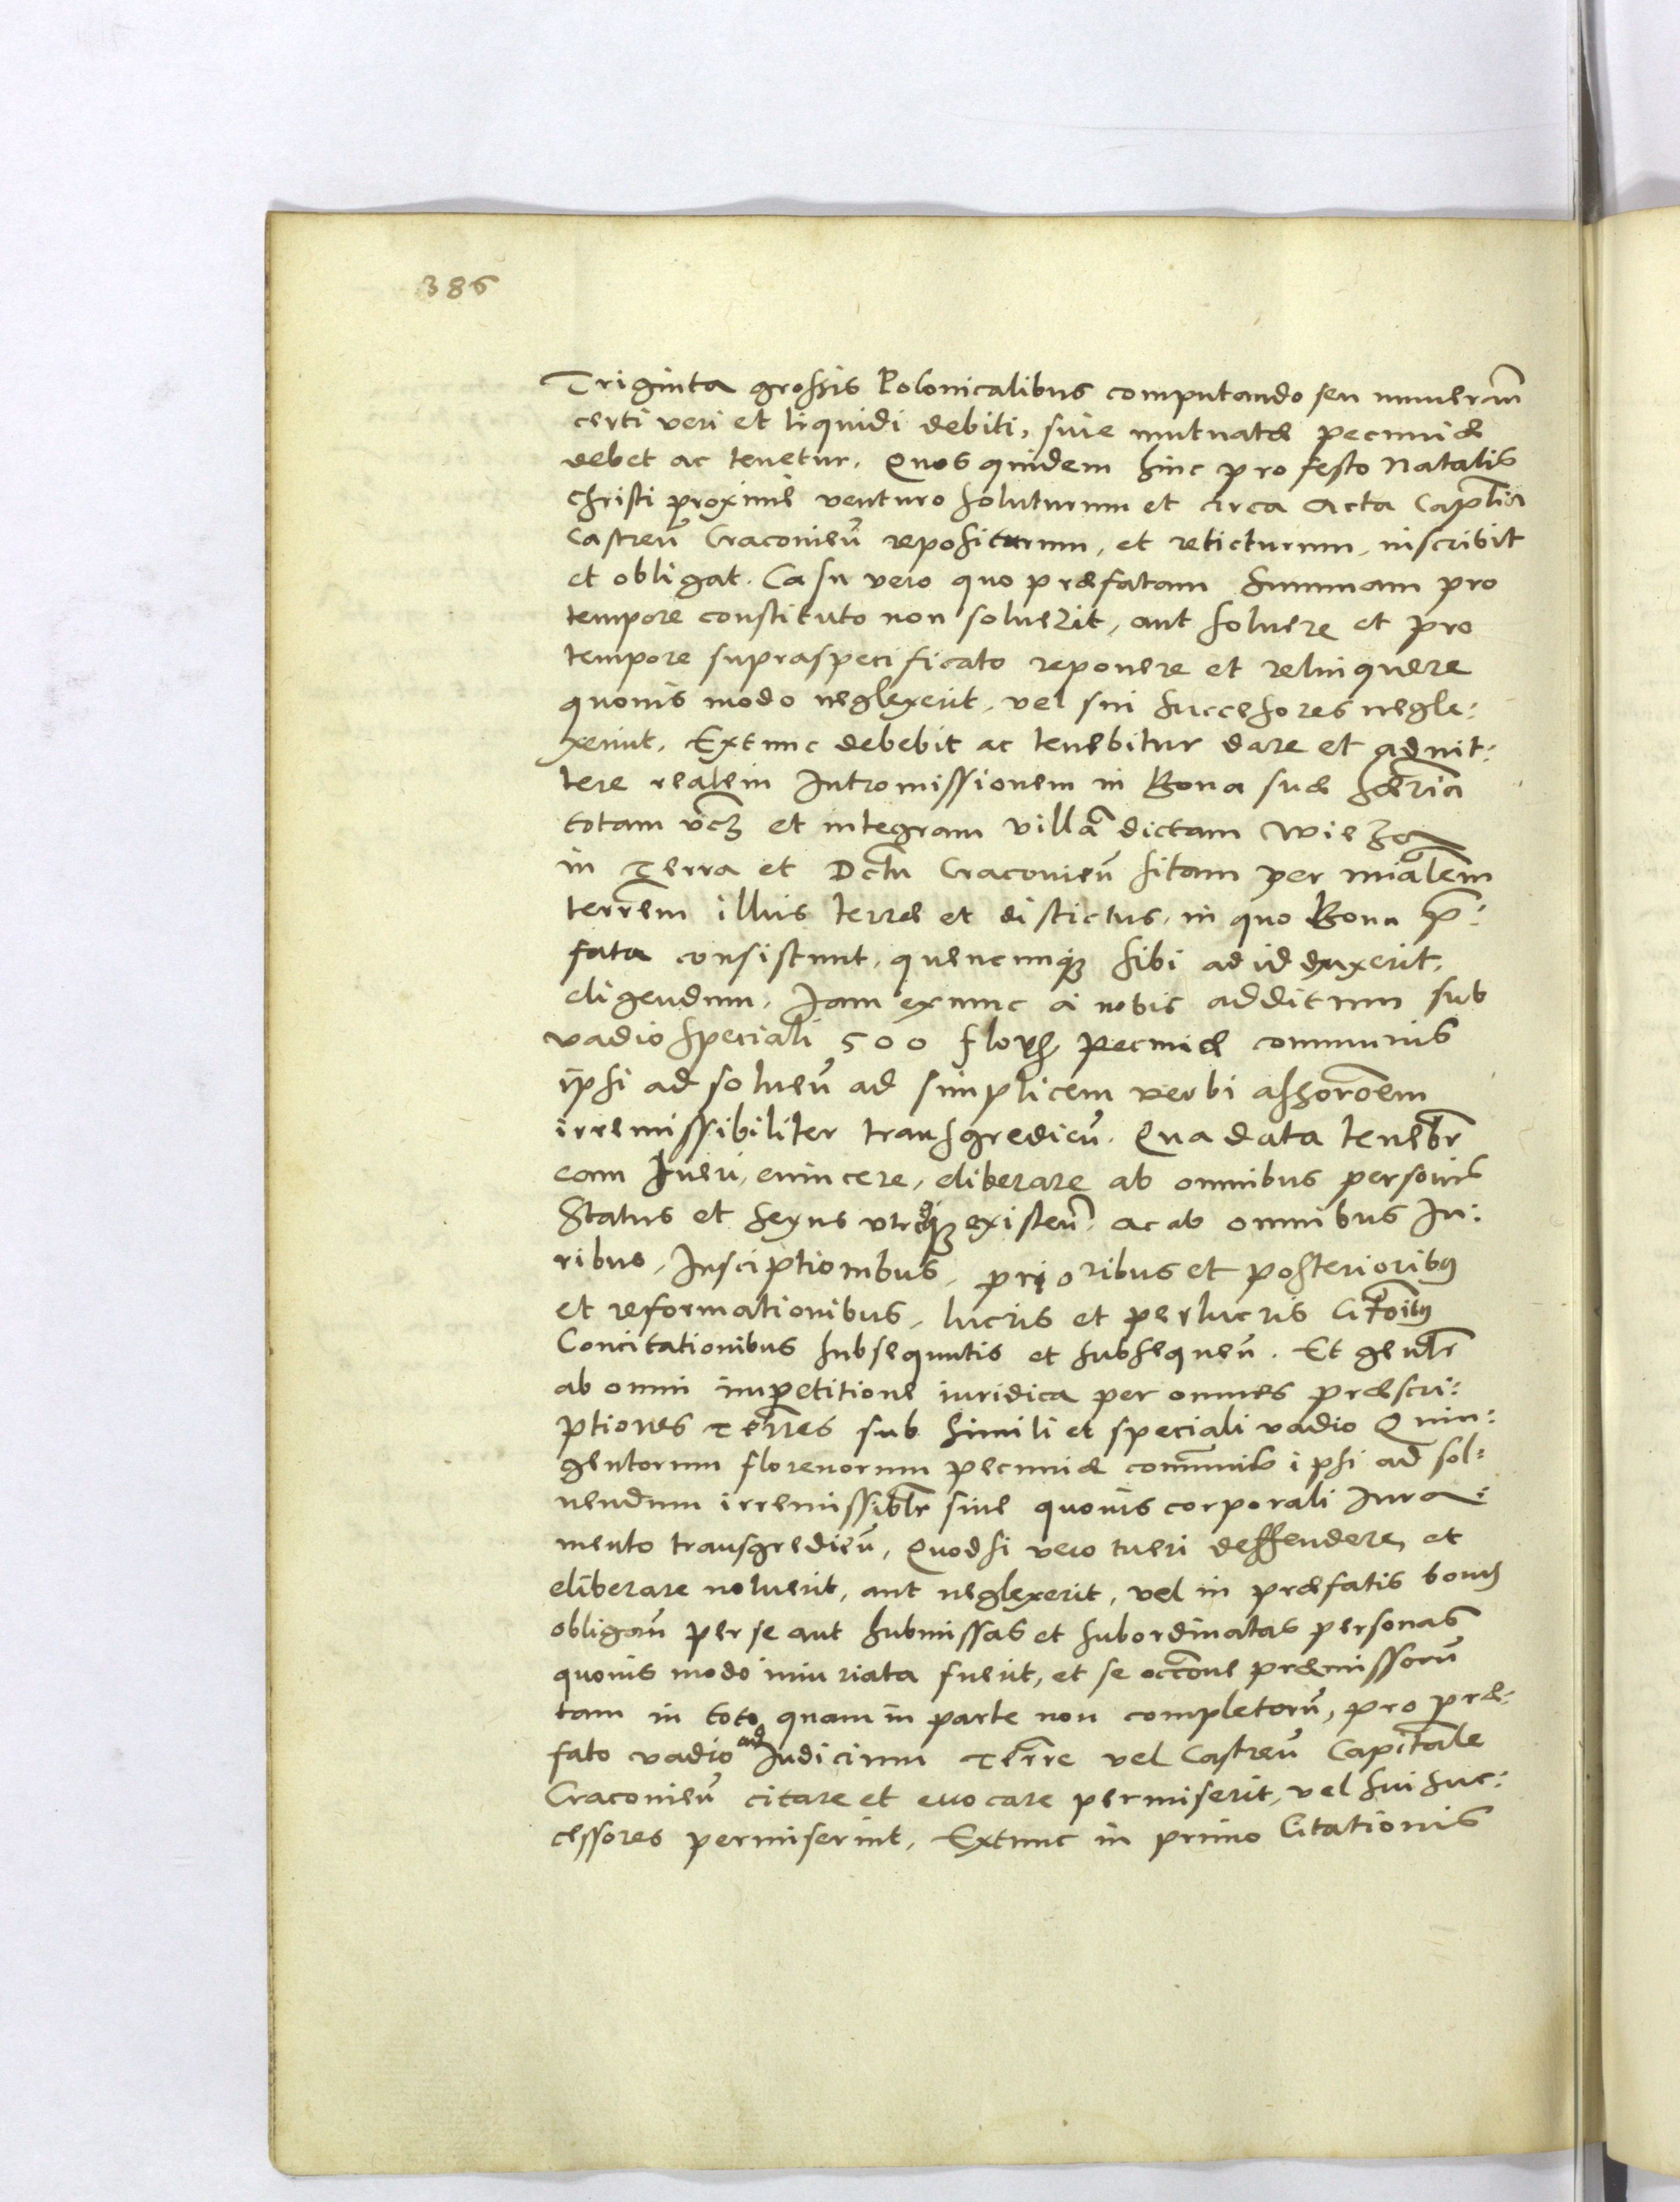 386
Triginta grossis Polonicalibus computando seu numeran̄
certi veri et liquidi debiti, suae mutuatæ pecuniæ
debet ac tenetur. Quos quidem hinc pro festo Natalis
Christi proximè venturo soluturum et circa Acta Captlia
Castreñ Cracovieñ repositurum, et relicturum, inscribit
et obligat. Casu vero quo præfatam summam pro
tempore constituto non soluerit, aut soluere et pro
tempore supraspecificato reponere et relinquere
quouis modo neglexerit, vel sui successores negle:
xerint. Extunc debebit ac tenebitur dare et admit:
tere realem Intromissionem in Bona sua hæria
totam vcz et integram villā dictam Wieza
in Terra et Dctu Cracovieñ sitam per mialem
terrēm illius terræ et distictus, in quo Bona p̄:
fata consistunt, quencunqz sibi ad id duxerit,
eligendum. Iam exnunc à nobis additum sub
vadio speciali 500 flor. pecuniæ communis
ipsi ad solueñ ad simplicem verbi asserōem
irremissibiliter transgredieñ. Qua data tenebr
eam tueri, euincere, eliberare ab omnibus personis
Status et sexus vtriqz existeñ, ac ab omnibus Iu:
ribus, Insciptionibus, prioribus et posterioribus
et reformationibus, lucris et perlucris Citōibus
Concitationibus subsequutis et subsequeñ. Et genlr
ab omni impetitione iuridica per omnes præscri:
ptiones Terres sub simili et speciali vadio Quin:
gentorum florenorum pecuniæ communis ipsi ad sol:
uendum irremissiblr siue quouis corporali Iura:
mento transgredieñ, Quodsi vero tueri deffendere et
eliberare noluerit, aut neglexerit, vel in præfatis bonis
obligañ per se aut submissas et subordinatas personas
quouis modo iniuriata fuerit, et se occōne præmissorū
tam in toto quam in parte non completorū, pro præ:
fato vadio ad Iudicium Terre vel Castreñ Capitnale
Cracovieñ citare et euocare permiserit, vel sui suc:
cessores permiserint, Extunc in primo Citationis